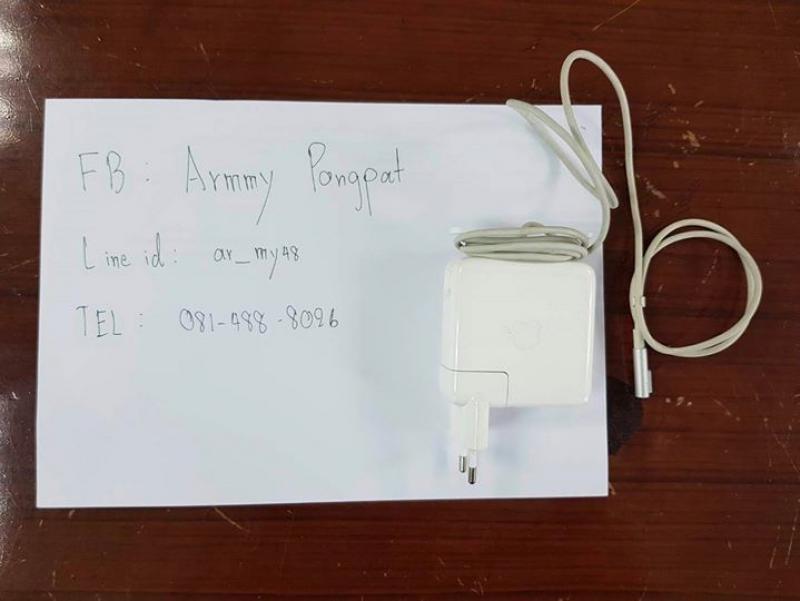 FB : Armmy Pongpat
Line id : ar_my48
TEL : 081-488-8026